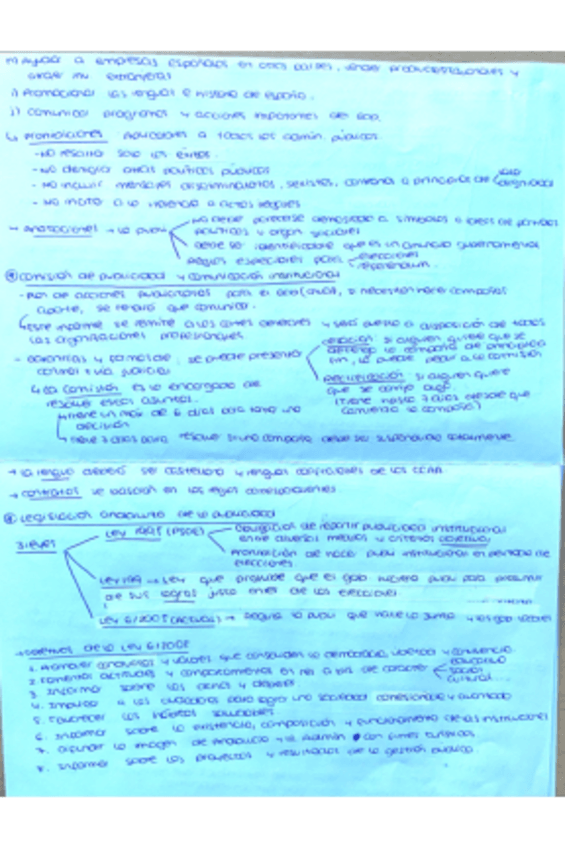 h) Ayudar a empresas españolas en otros países, vender productos nacionales y
atraer inv extranjeras
i) Promocionar las lenguas e historia de españa.
j) Comunicar programas y acciones importantes de gob.
↳ prohibiciones: Aplicables a todas las admin. públicas
- No resaltar solo los éxitos.
- No denigrar otras políticas públicas
- No incluir mensajes discriminatorios, sexistas, contrarios a principios de
dignidad
- No incitar a la violencia o actos ilegales
no debe parecerse demasiado a símbolos o ideas de partidos
políticos u organ. sociales
debe ser identificable que es un anuncio gubernamental
Reglas especiales para elecciones
referéndum.
Comisión de publicidad y comunicación institucional
- Plan de acciones publicitarias para el año, si necesitan hacer campañas
aparte, se tendrá que comunicar.
↳ este informe se remite a las cortes generales y será puesto a disposición de todas
las organizaciones profesionales
se puede presentar
control x vía judicial
cesación: si alguien quiere que se
detenga la campaña de principio a
fin, la puede pedir a la comisión
rectificación: si alguien quiere
que se cambie algo.
(tiene hasta 7 días desde que
comienza la campaña)
↳ La comisión es la encargada de
resolver estos asuntos.
↳ tiene un max de 6 días para tomar una
decisión
↳ tiene 3 días para resolver si una campaña debe ser suspendida cautelarmente.
→ la lengua deberá ser castellano y lenguas cooficiales de las CCAA
→ contratos se basarán en las leyes correspondientes
Legislación andaluza de la publicidad
3 leyes
Ley 1995 (PSOE)
Obligación de repartir publicidad institucional
entre diversos medios y criterios objetivos
Prohibición de hacer publi institucional en periodo de
elecciones
Ley que prohíbe que el gob hiciera publi para presumir
de sus logros justo antes de las elecciones
Ley 6/2005 (ACTUAL) → Regula la publi que hace la Junta y los gob locales
→ objetivos de la Ley 6/2005
1. Promover conductas y valores que consoliden la democracia, libertad y convivencia
2. Fomentar actitudes y comportamientos de carácter educativo
social
cultural
3. Informar sobre los dchos y deberes
4. Impulsar a los ciudadanos para lograr una sociedad cohesionada y avanzada
5. Favorecer los intereses
6. Informar sobre la existencia, composición y funcionamiento de las instituciones
7. Difundir la imagen de Andalucía y la admin con fines turísticos
8. Informar sobre los proyectos y resultados de la gestión pública.